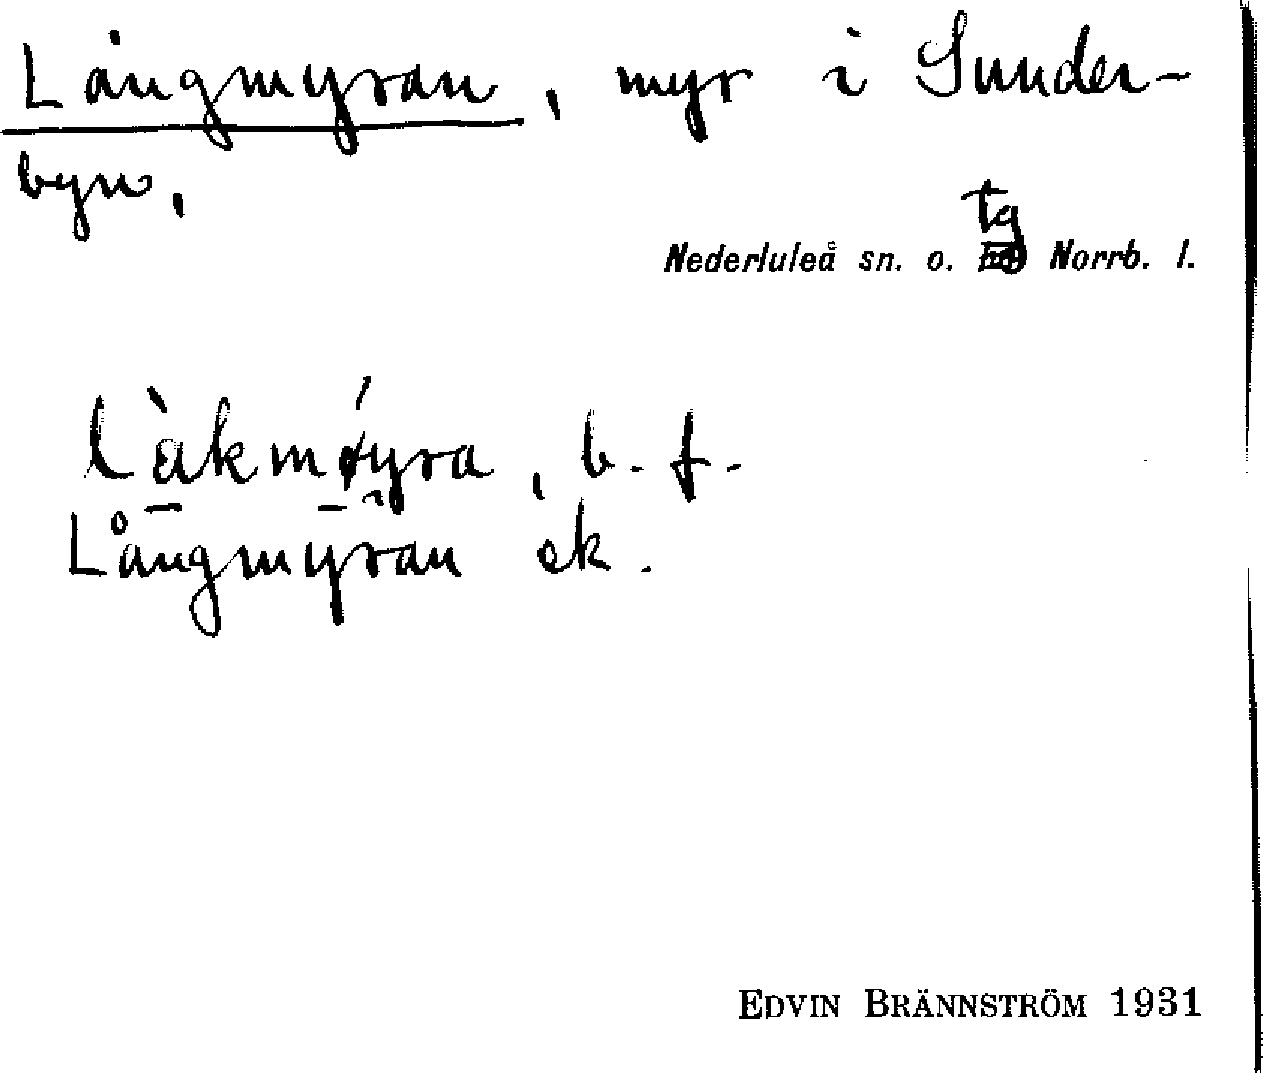 Långmyran, myr i Sunder-
byn,
tg
Nederluleå sn. o. Norrb. l.
làkmøýra, b. f.
Långmyran ek.
EDVIN BRÄNNSTRÖM 1931